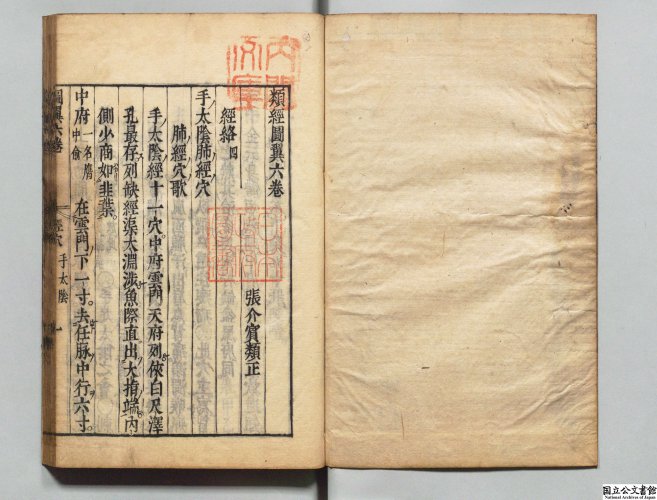 類經圖翼六卷
張介賓類正
經絡四
手太陰肺經穴
肺經穴歌
手太陰經十一穴中府雲門天府列俠白尺澤
孔最存列缺經渠太淵涉魚際直出大指端內
側少商如韭葉
中府一名膺中俞 在雲門下一寸去任脉中行六寸
圖翼六卷 經穴 手太陰 一
內閣文庫
国立公文書館
National Archives of Japan